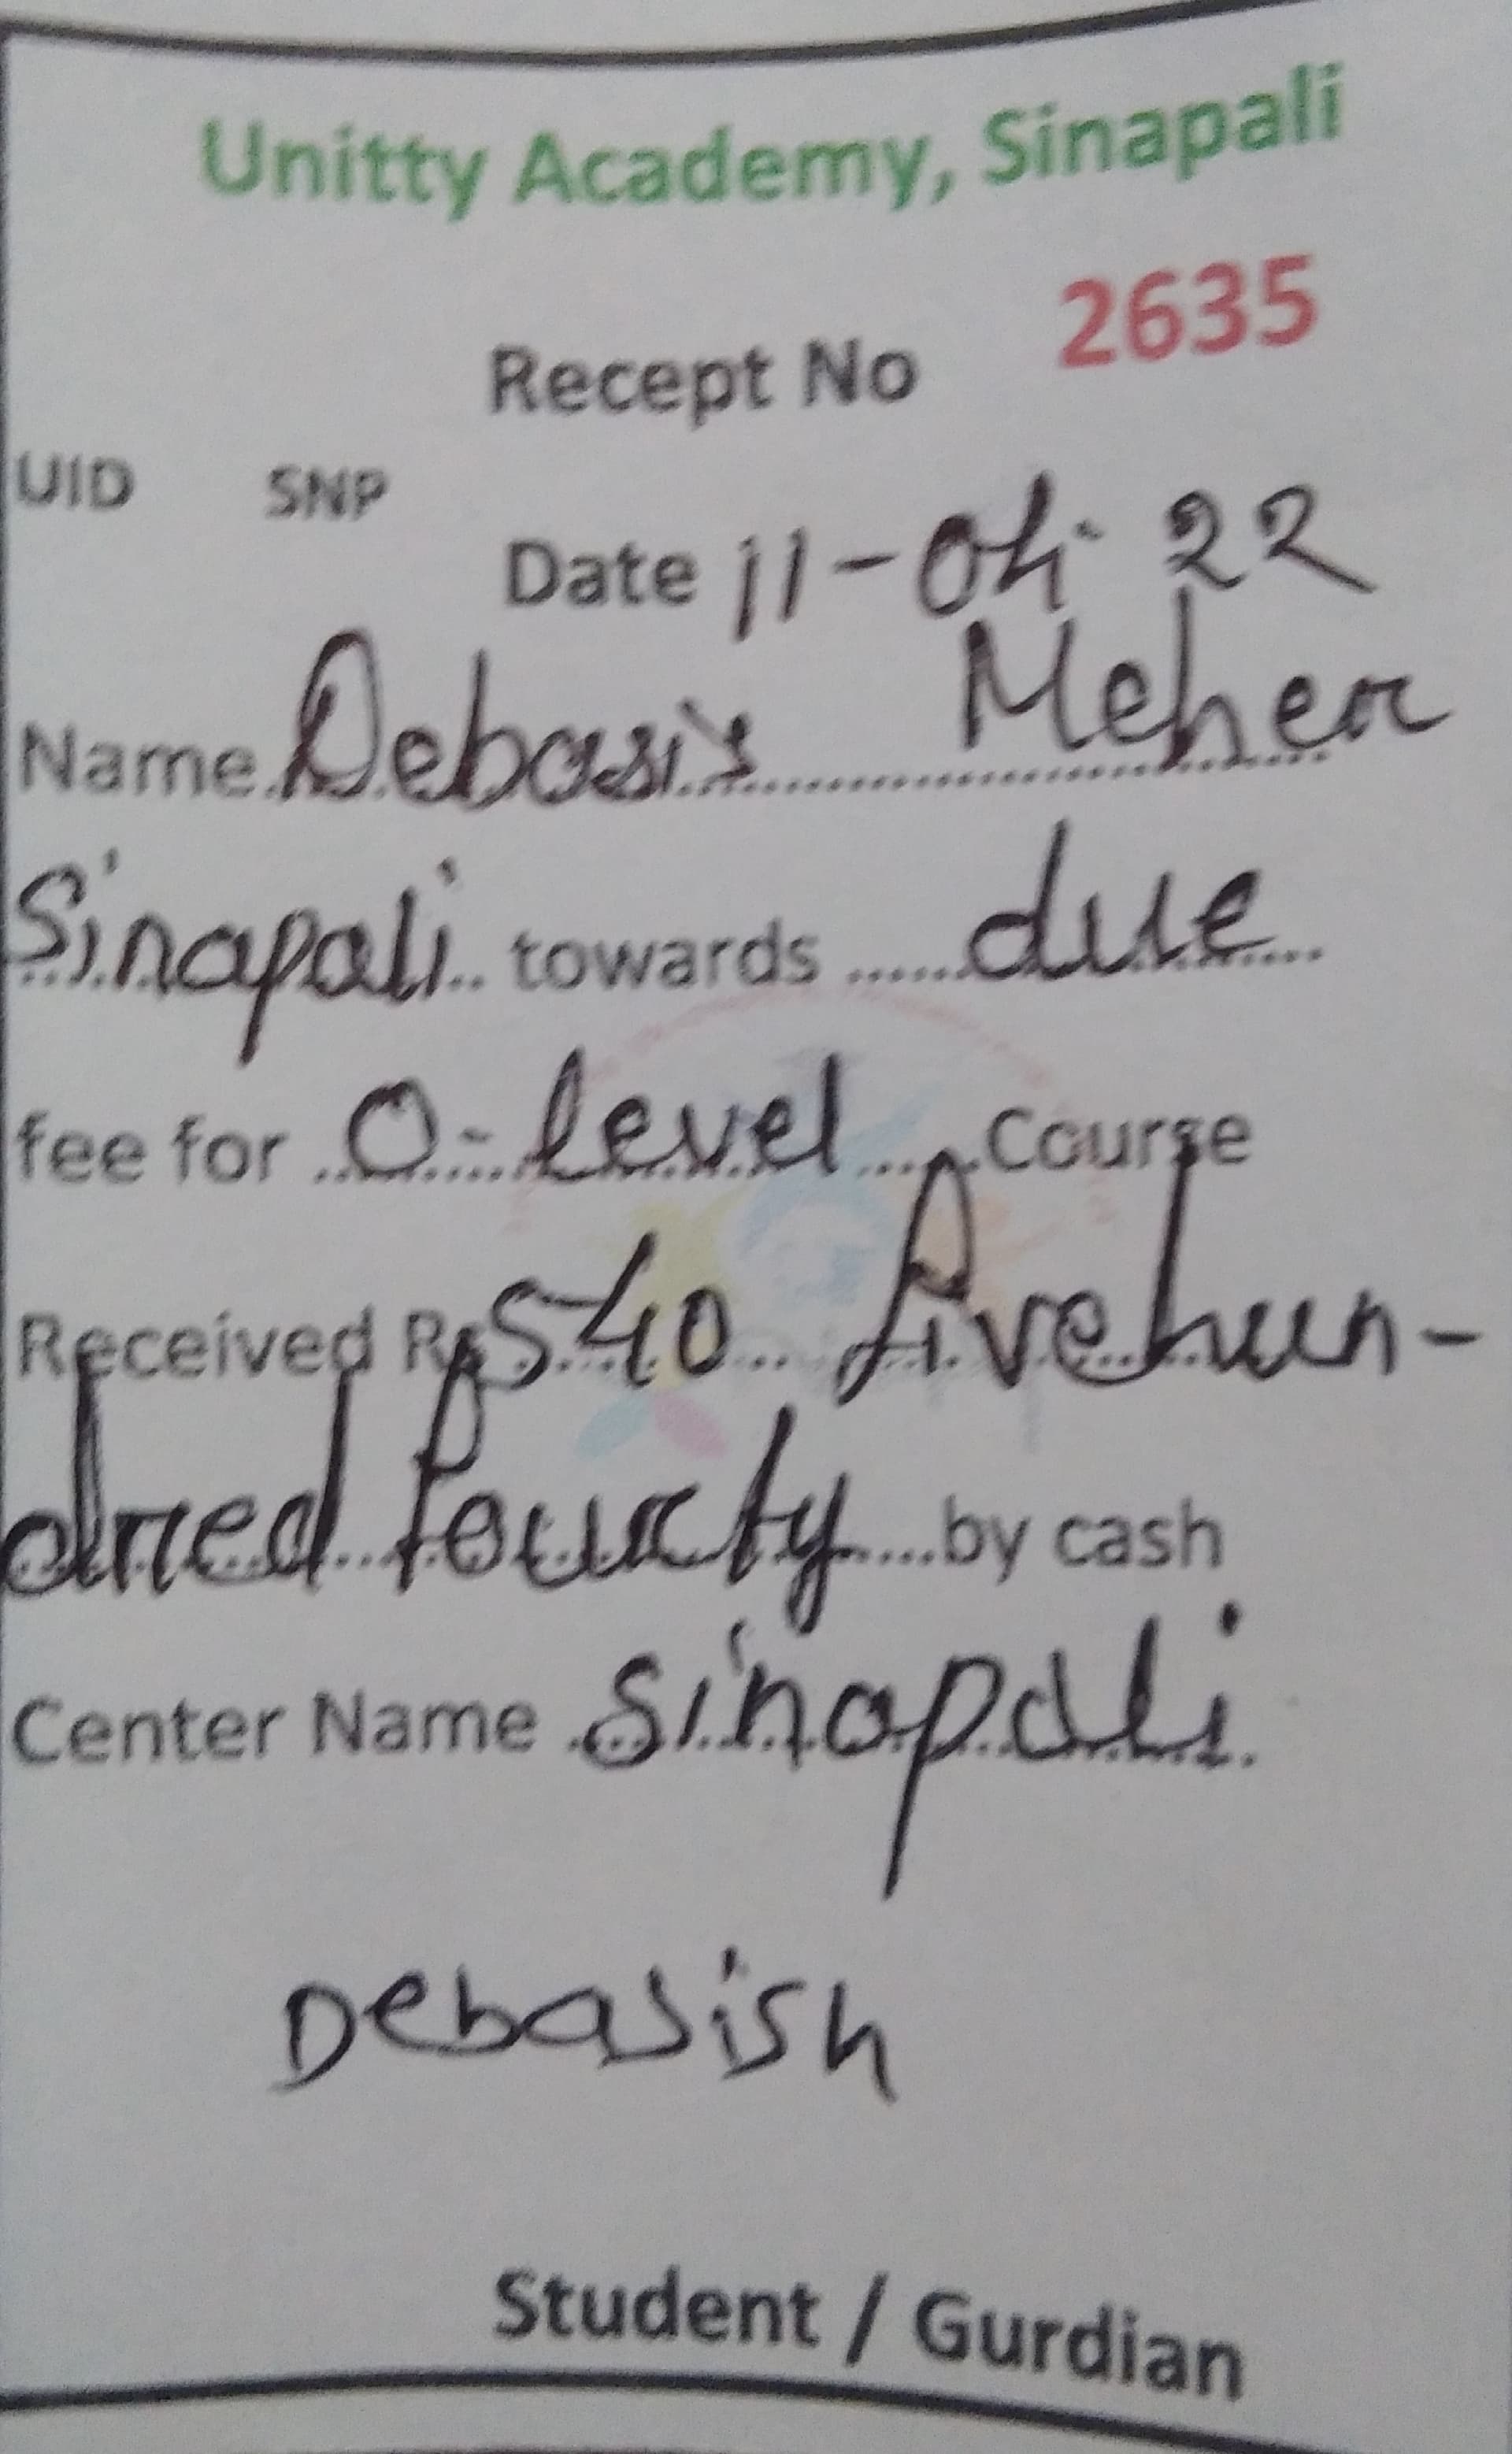 Unitty Academy, Sinapali
2635
Recept No
UID SNP
Date 11-04-22
Name Debasis Meher
Sinapali towards due
fee for O-level Course
Received Rs 540 Fivehun-
dred Fourty by cash
Center Name Sinapali
Debasish
Student / Gurdian